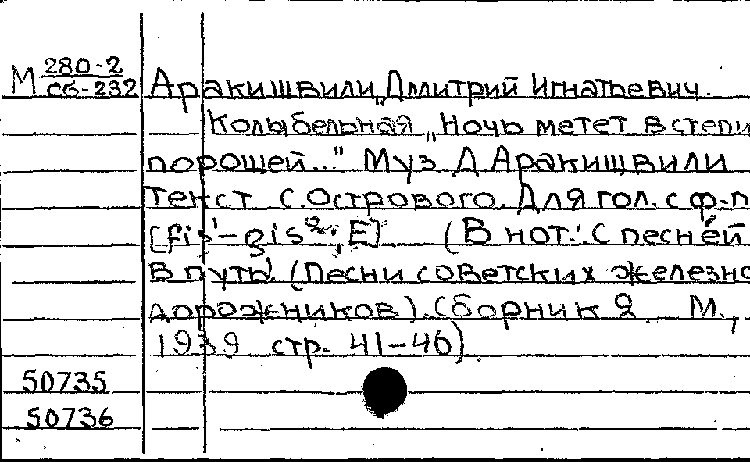 М 280-2
Сб-232
Аракишвили, Дмитрий Игнатьевич.
Колыбельная „Ночь метет в степи
порошей..." Муз Д Аракишвили
Текст С. Острового. Для гол. с ф-п
[fis¹-gis², E] (В нот.: С песней
в путь. (Песни советских железно
дорожников). Сборник 2 М.,
1939 стр. 41-46)
50735
50736